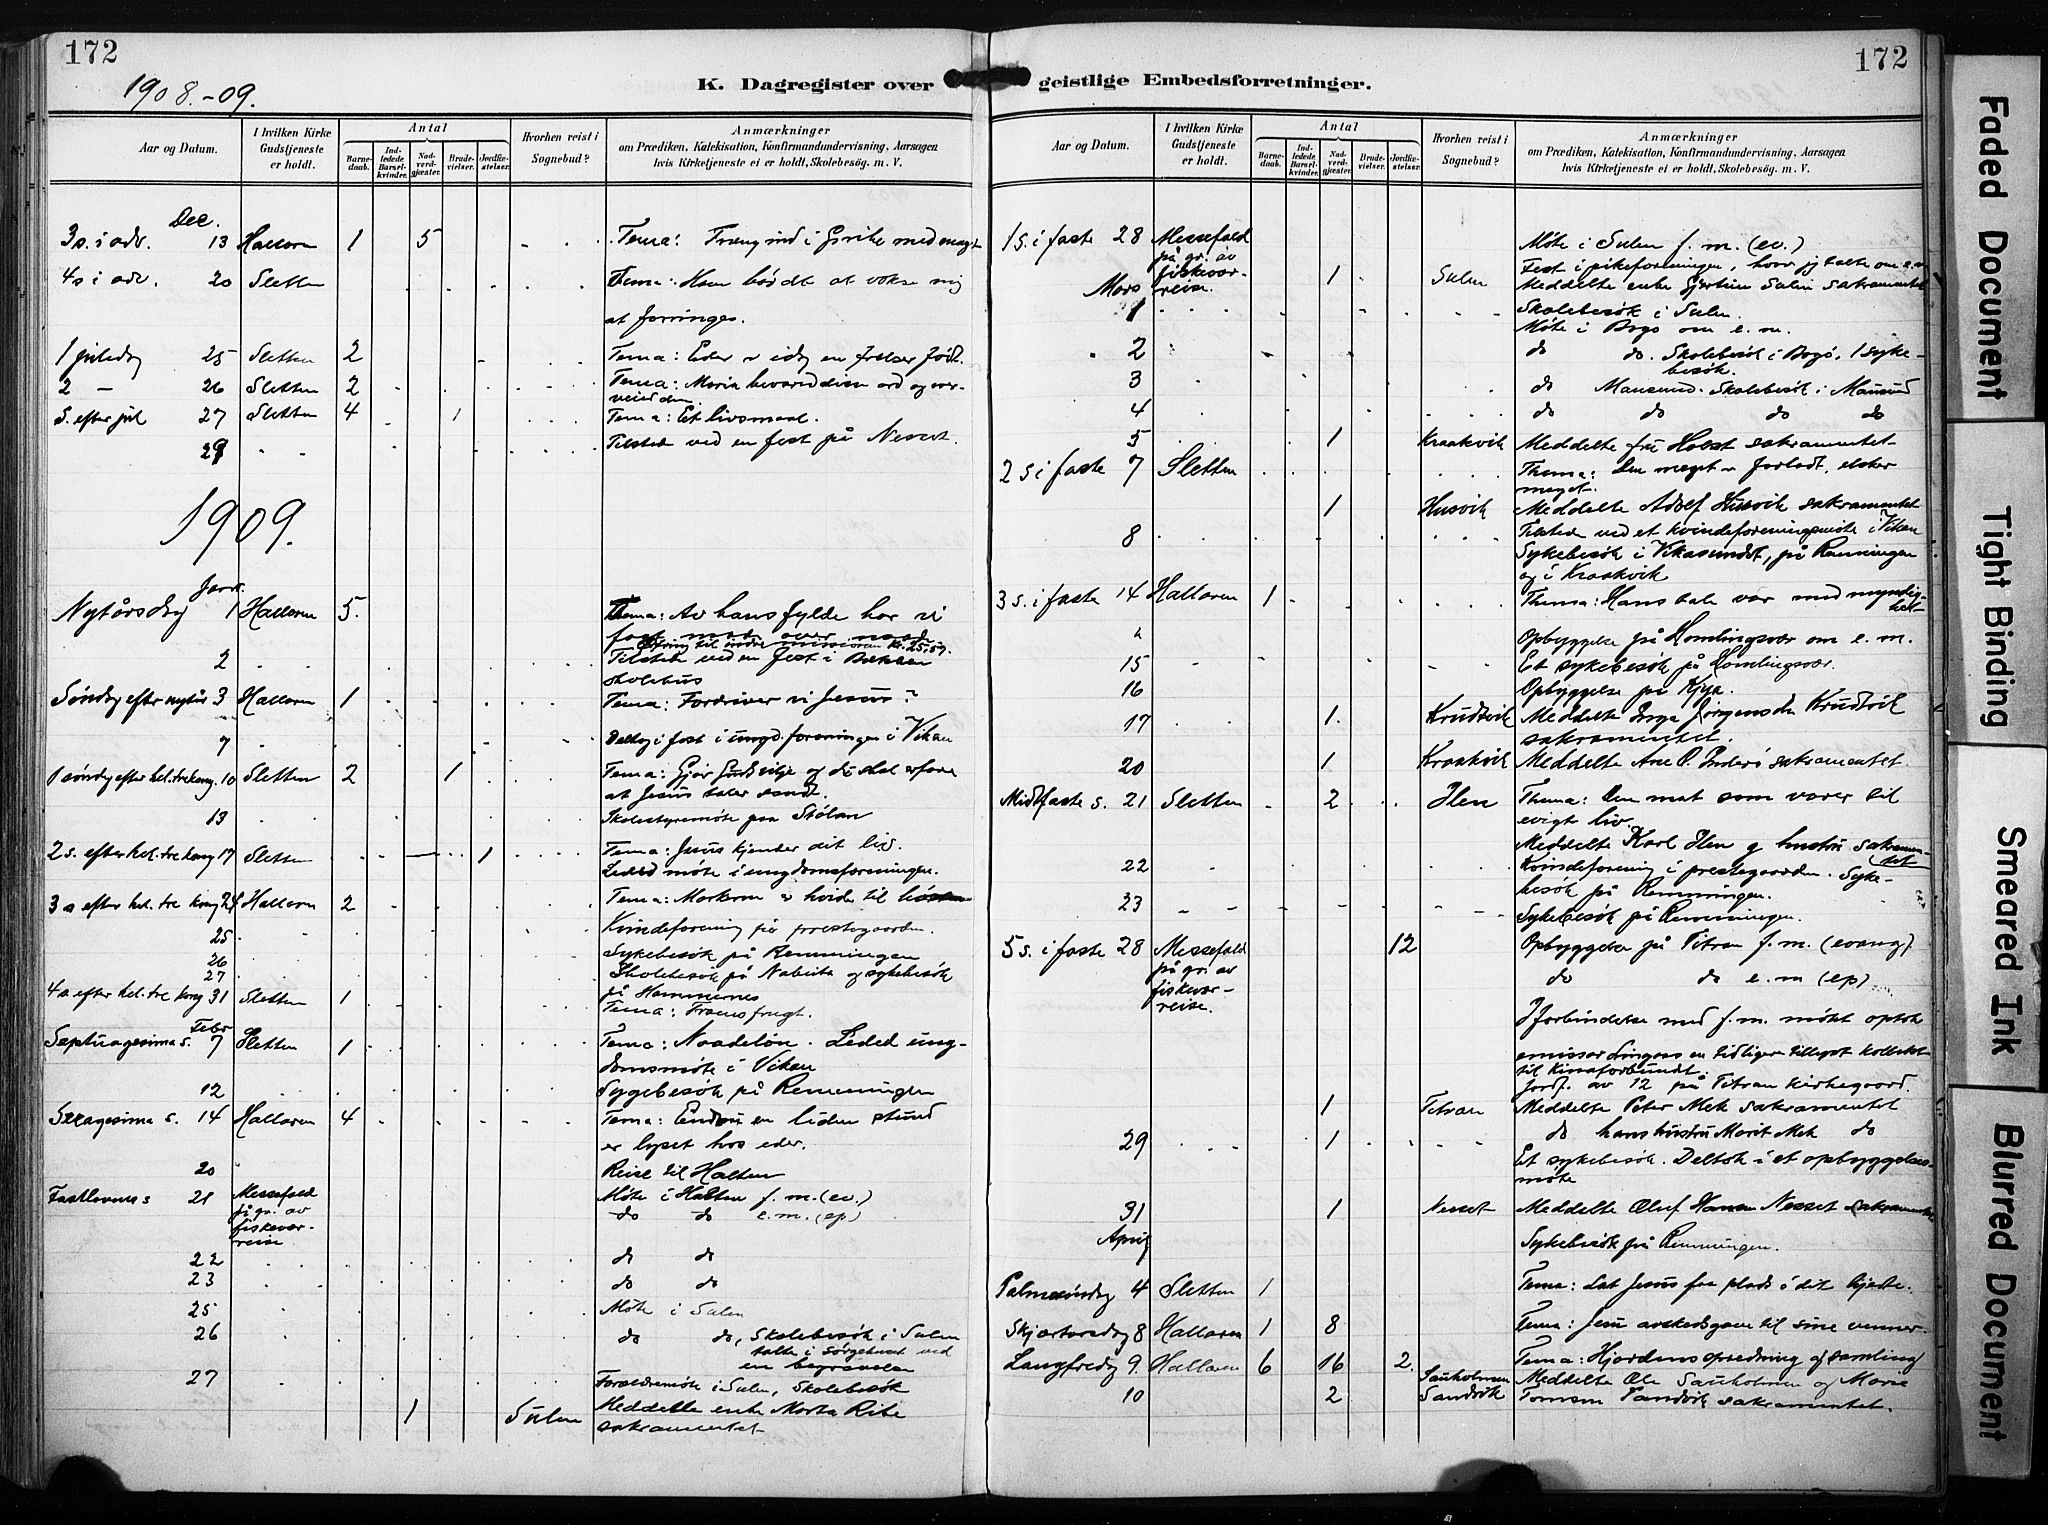 172
1908.-09.
K. Dagregister over
Aar og Datum.
I hvilken Kirke Gudstjeneste er holdt.
Antal
Barnedaab.
Indledede Barselkvinder.
Nadverdgjæster.
Brudevielser.
Jordfæstelser.
Hvorhen reist i Sognebud?
Anmærkninger
om Prædiken, Katekisation, Konfirmandundervisning, Aarsagen
hvis Kirketjeneste ei er holdt, Skolebesög. m. V.
Dec.
3 s. i adv. 13 Hallaren 1 5 Tema: Træng ind i Guds rike med magt
4 s i adv. 20 Sletten Tema: Ham bør det at vokse mig
at forringes.
1 juledag 25 Sletten 2 Tema: Eder er idag en frelser født.
2 — 26 Sletten 2 Tema: Maria bevared disse ord og over-
veied dem.
S. efter jul 27 Sletten 4 1 Tema: Et livsmaal.
29 Tilstede ved en fest på Nesset.
1909.
Janr.
Nytårsdag 1 Hallaren 5. Tema: Av hans fylde har vi
faat naade over naade
Ofring til indre missionen Kr. 25,57.
2 Tilstede ved en fest i Bekken
skolehus
Søndag efter nytår 3 Hallaren 1 Tema: Fordriver vi Jesus?
7 Deltog i fest i ungd.foreningen i Vikan
1 søndag efter hel. tre kong. 10 Sletten 2 1 Tema: Gjør Guds vilje og du skal erfare
at Jesus taler sandt.
13 Skolestyremøte paa Stølan
2 s. efter hel. tre kong 17 Sletten 1 Tema: Jesus kjender dit liv.
Leded møte i ungdomsforeningen.
3 s efter hel. tre kong 24 Hallaren 2 Tema: Markerne er hvide til høsten
25 Kvindeforening på prestegaarden.
26 Sykebesøk på Remmingen
27 Skolebesøk på Nabeita og sykebesøk
på Hammernes
4 s efter hel. tre kong 31 Sletten 1 Tema: Troens frugt.
Febr
Septuagesima s. 7 Sletten 1 Tema: Naadeløn. Leded ung-
domsmøte i Vikan
12 Sygebesøk på Remmingen
Sexagesima s. 14 Hallaren 4 Tema: Endnu en liden stund
er lyset hos eder.
20 Reise til Halten
Fastlavens s 21 Messefald Møte i Halten f.m. (ev.)
på gr. av do do e.m. (ep)
fiskevær-
reise
22 do do
23 do do
25 Møte i Sulen
26 do do, Skolebesøk i Sulen
talte i sørgehuset ved
en begravelse
27 Forældremøte i Sulen, Skolebesøk
1 Sulen Meddelte enke Marta Rise
sakramentet
172
geistlige Embedsforretninger.
Aar og Datum.
I hvilken Kirke Gudstjeneste er holdt.
Antal
Barnedaab.
Indledede Barselkvinder.
Nadverdgjæster.
Brudevielser.
Jordfæstelser.
Hvorhen reist i Sognebud?
Anmærkninger
om Prædiken, Katekisation, Konfirmandundervisning, Aarsagen
hvis Kirketjeneste ei er holdt, Skolebesög. m. V.
1 s. i faste 28 Messefald Møte i Sulen f.m. (ev.)
på gr. av Fest i pikeforeningen, hvor jeg talte om e.m
fiskevær- 1 Sulen Meddelte enke Sulen sakramentet
reise.
Mars
1 Skolebesøk i Sulen.
Møte i Bogø om e.m.
2 do do. Skolebesøk i Bogø, 1 syke-
besøk.
3 do Mausund. Skolebesøk i Mausund
4 do do do do
5 1 Kraakvik Meddelte fru Holst sakramentet
2 s i faste 7 Sletten Thema: Den meget er forladt, elsker
meget.
1 Husvik Meddelte Adolf Husvik sakramentet
8 Tilstede ved et kvindeforeningsmøte i Vikan
Sykebesøk i Vikasundet, på Remmingen
og i Kraakvik
3 s. i faste 14 Hallaren 1 Thema: Hans tale var med myndig-
het
" Opbyggelse på Homlingsvær om e.m.
15 Et sykebesøk på Homlingsvær.
16 Opbyggelse på Kjya.
17 1. Krudtvik Meddelte Inga Krudtvik
sakramentet.
20 1 Kraakvik Meddelte Ane O. sakramentet.
Midtfaste s. 21 Sletten 2 Ilen Thema: Den mat som varer til
evigt liv.
Meddelte Karl Ilen og hustru sakramen-
tet
22 Kvindeforening i prestegaarden. Syke-
besøk på Remmingen.
23 Sykebesøk på Remmingen.
5 s. i faste 28 Messefald 12 Opbyggelse på Titran f.m. (evang)
på gr. av do do e.m (ep)
fiskevær-
reise.
I forbindelse med f.m. møtet optok
emissær en tidligere tillyst kollekt
til Kinaforbundt.
Jordf. av 12 på Titran kirkegaard.
1 Titran Meddelte Peter Mek sakramentet
29 1 do hans hustru Marit Mek do
Et sykebesøk. Deltok i et opbyggelses-
møte
31 1 Nesset Meddelte Oluf Hansen Nesset sakramentet
Sykebesøk på Remmingen.
April
Palmesøndag 4 Sletten 1 Tema: Lat Jesus faa plads i dit hjerte.
Skjærtorsdag 8 Hallaren 1 8 Tema: Jesu avskedsgave til sine venner.
Langfredag 9. Hallaren 6 16 2. Tema: Hjordens spredning og samling
10 2 Sauholmen Meddelte Ole Sauholmen og Marie
Sandvik Tomsen Sandvik sakramentet.
Faded Document
Tight Binding
Smeared Ink
Blurred Document